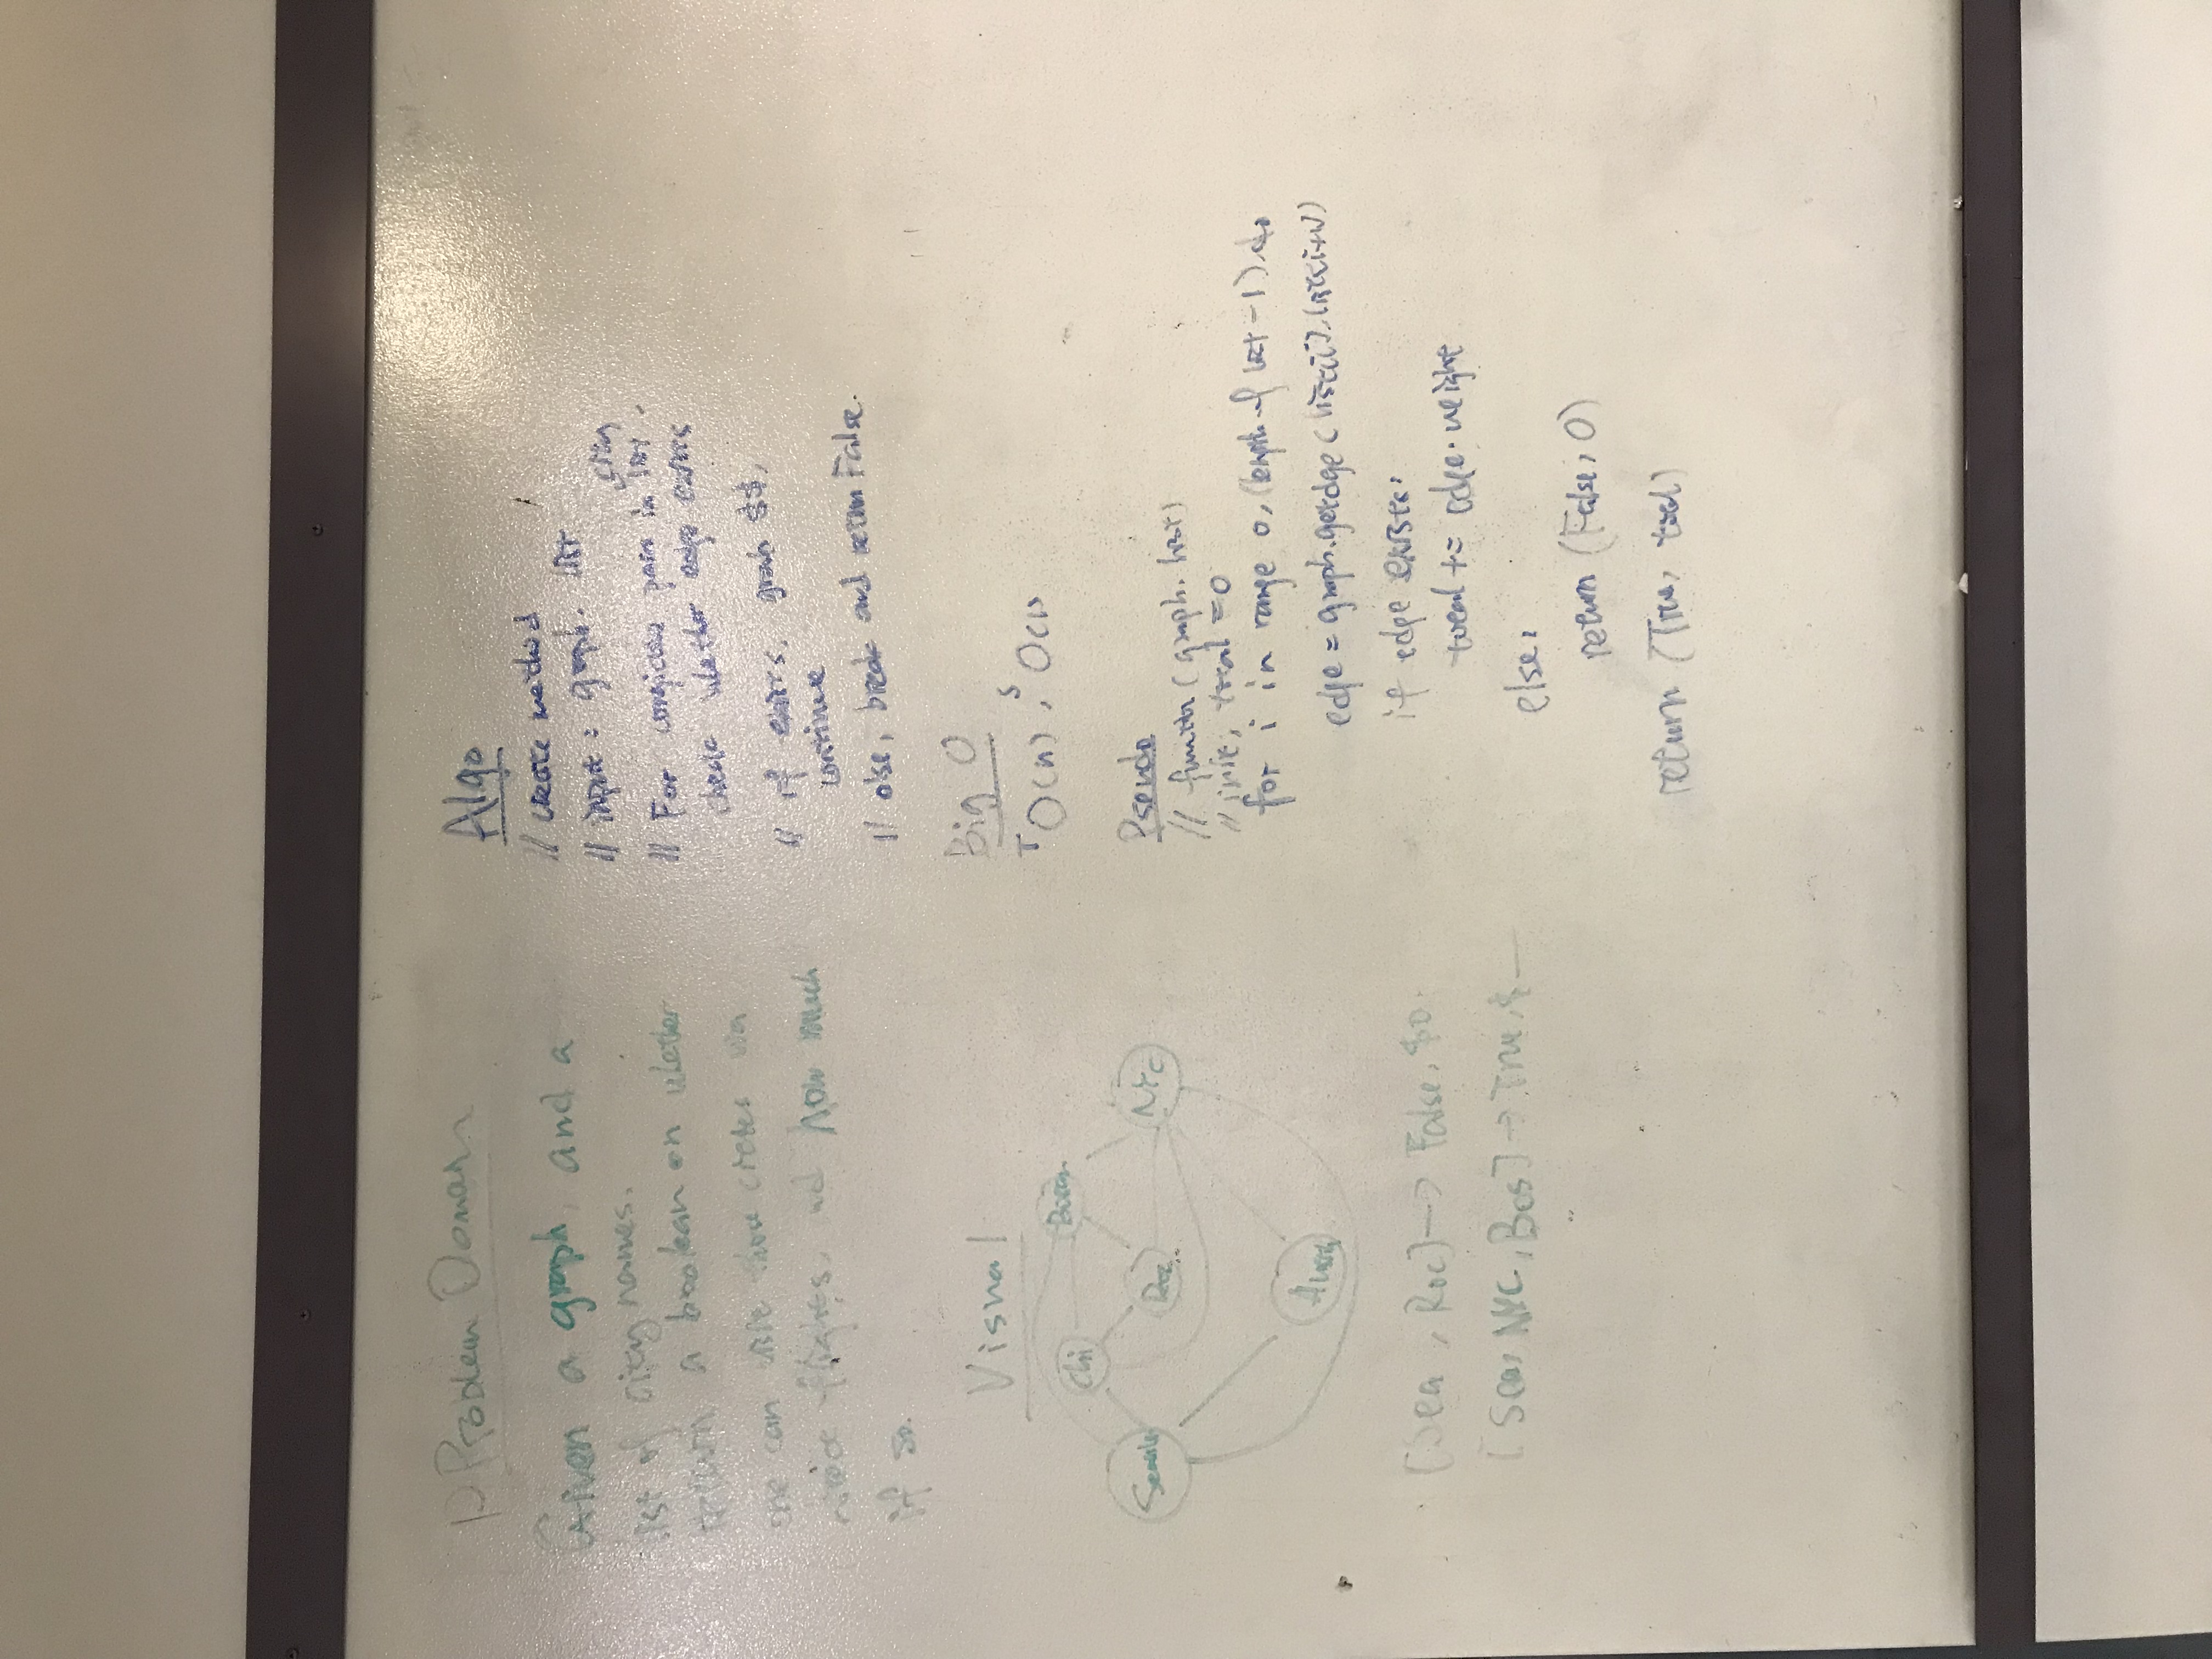 Problem Domain
Given a graph, and a
list of city names.
return a boolean on whether
one can visit those cities via
direct flights, and how much
if so.
Visual
Chi
Boston
Seattle
Roc
NYC
Austin
[Sea, Roc] → False, $0.
[Sea, NYC, Bos] → True, $__
Algo
// create method
// input: graph. list
city
// For consecutive pairs in list
check whether edge exists
// if exists, grab $$,
continue
// else, break and return False.
Big O
T O(n), S O(1)
Pseudo
// function (graph. list)
// init, total = 0
for i in range 0, (length of list - 1), do
edge = graph.getedge (list[i], list[i+1])
if edge exists:
total += edge.weight
else:
return (False, 0)
return (True, total)